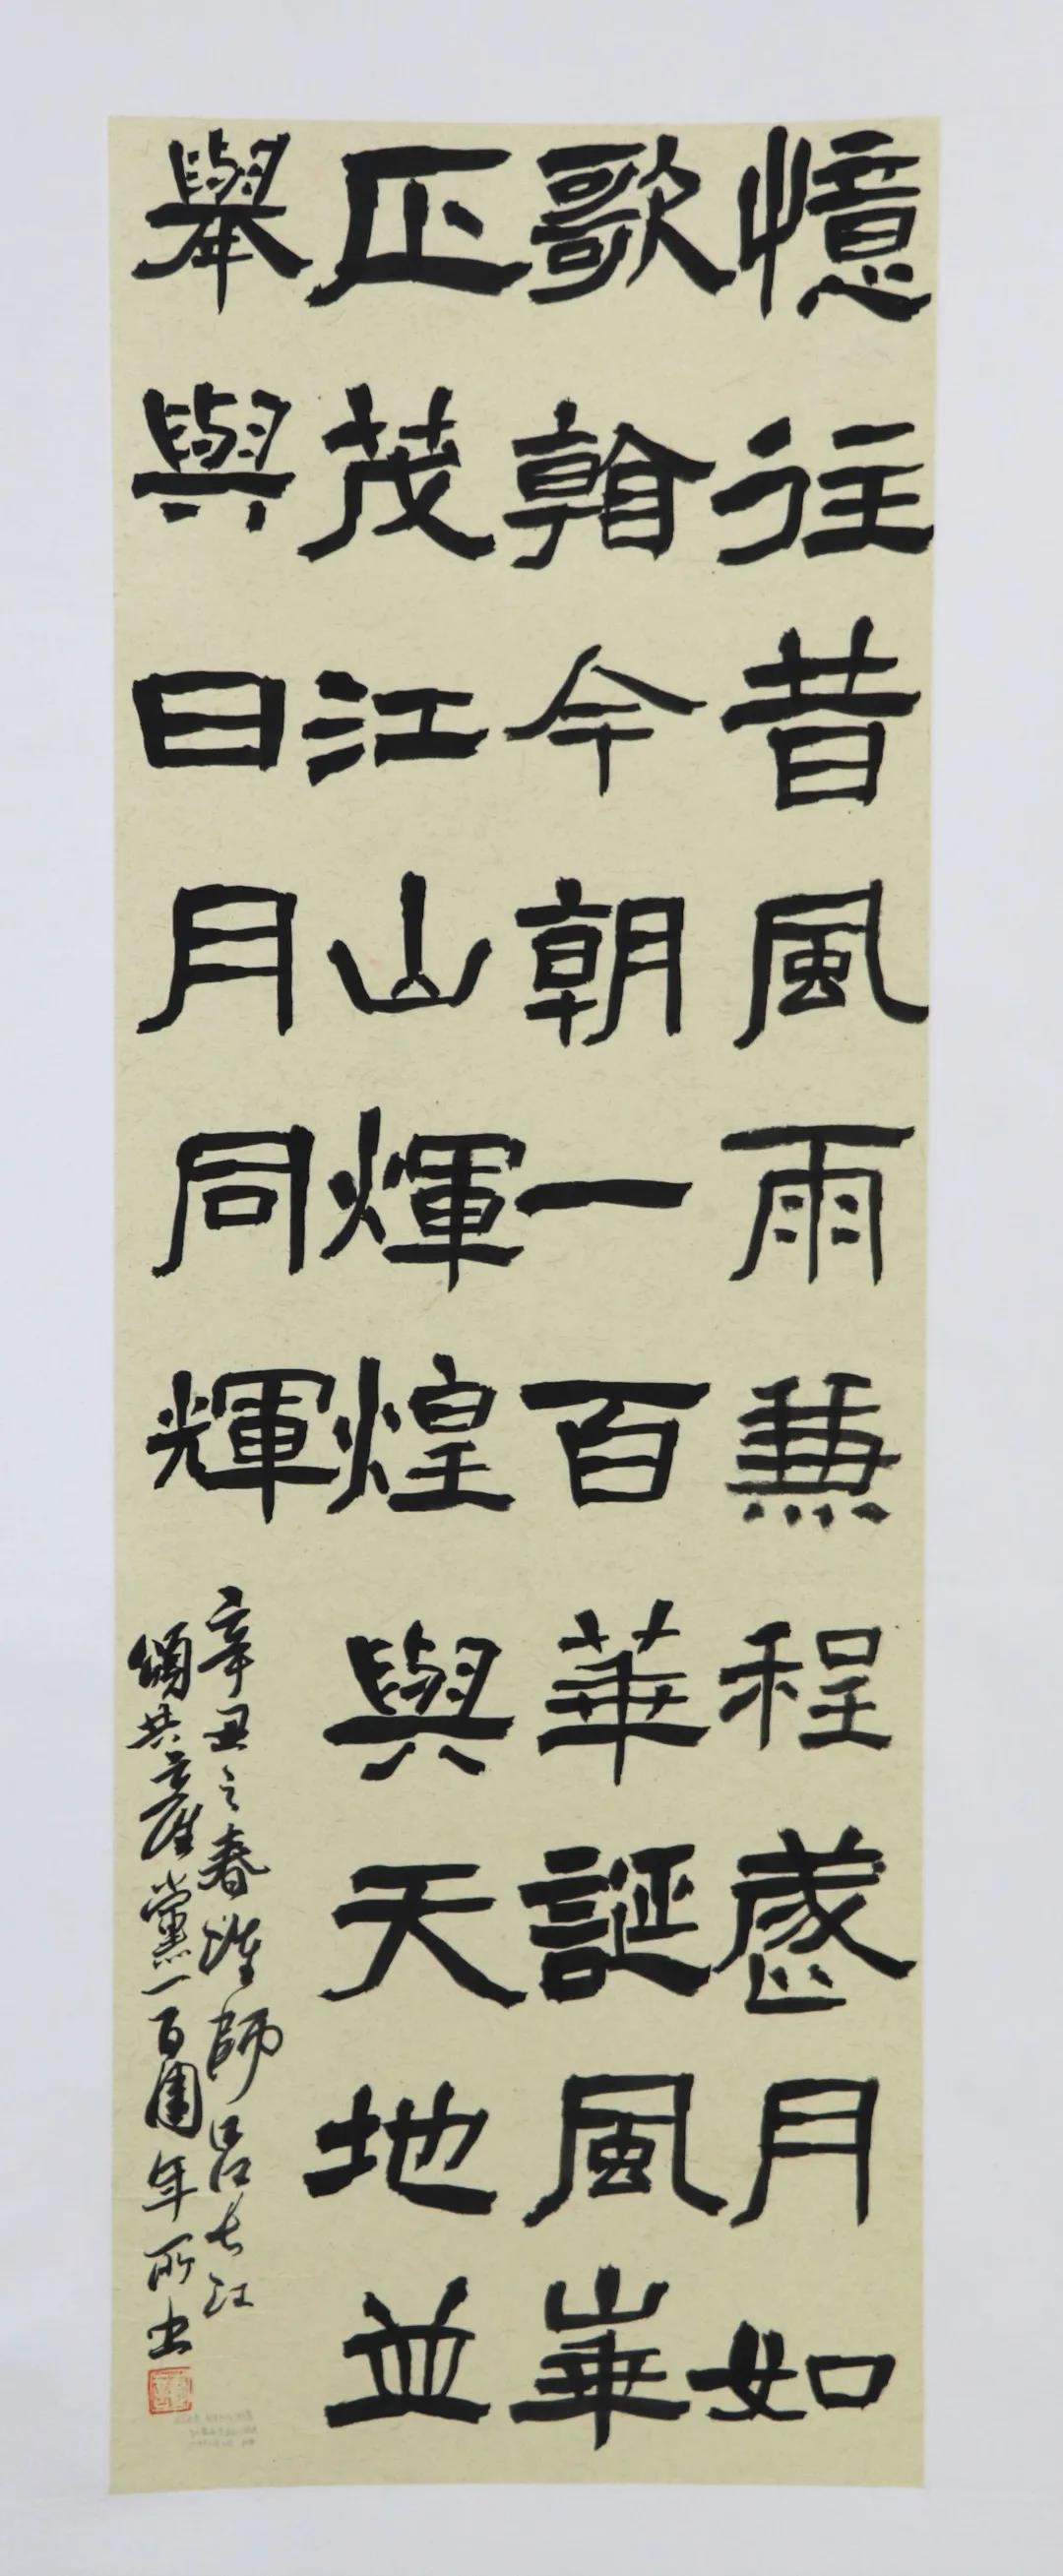 憶往昔風雨兼程歲月如
歌翰今朝一百華誕風華
正茂江山輝煌與天地並
舉與日月同輝
辛丑之春淮師呂長江
頌共產黨一百周年所書